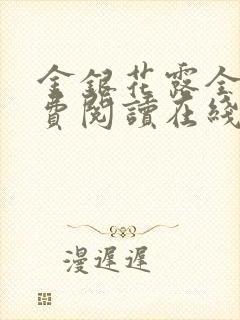 金銀花露全
費閱讀在綫
漫遲遲